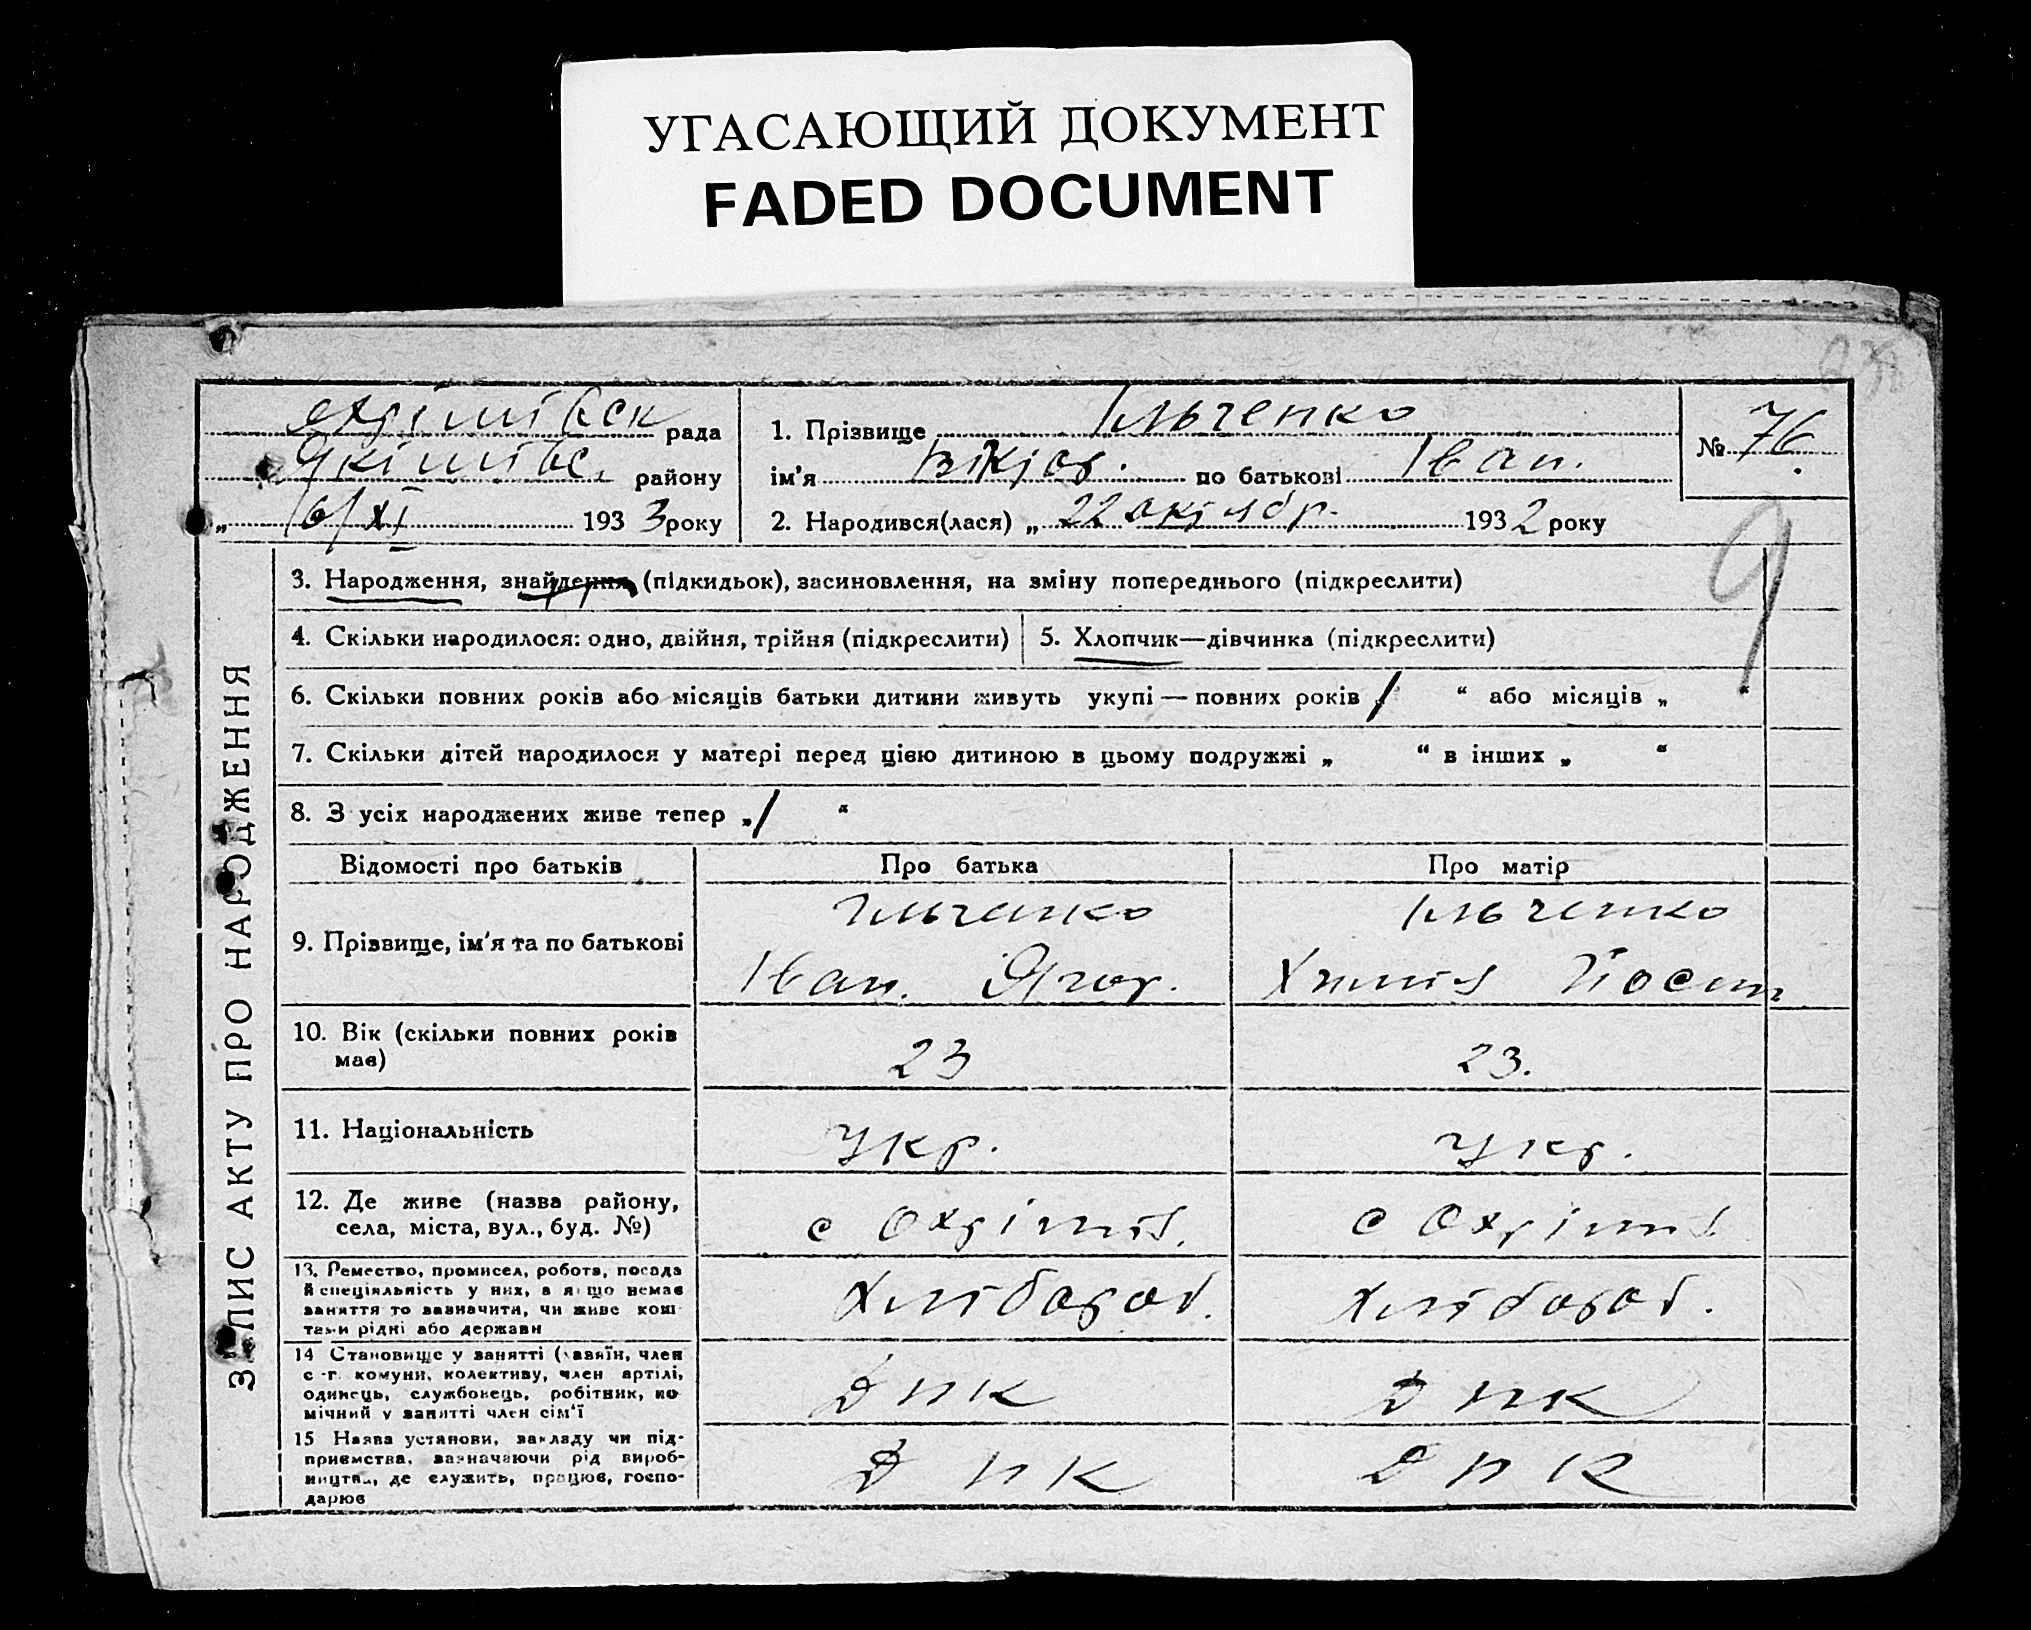 УГАСАЮЩИЙ ДОКУМЕНТ
FADED DOCUMENT
Охрімівськ рада
Якімівс. району
„ 16/XI 1933 року
1. Прізвище Ільченко
ім'я Віктор. по батькові Іван.
2. Народився(лася) „ 22 октябр. 1932 року
№ 76.
9
ЗАПИС АКТУ ПРО НАРОДЖЕННЯ
3. Народження, знайдення (підкидьок), засиновлення, на зміну попереднього (підкреслити)
4. Скільки народилося: одно, двійня, трійня (підкреслити)
5. Хлопчик—дівчинка (підкреслити)
6. Скільки повних років або місяців батьки дитини живуть укупі — повних років „ 1 “ або місяців „ “
7. Скільки дітей народилося у матері перед цією дитиною в цьому подружжі „ “ в інших „ “
8. З усіх народжених живе тепер „ 1 “
Відомості про батьків
Про батька
Про матір
9. Прізвище, ім'я та по батькові
Ільченко
Іван. Ягор.
Ільченко
Йосип
10. Вік (скільки повних років
має)
23
23.
11. Національність
Укр.
Укр.
12. Де живе (назва району,
села, міста, вул., буд. №)
с Охрімів.
с Охрімів
13. Ремество, промисел, робота, посада
й спеціяльність у них, а якщо немає
заняття то зазначити, чи живе кош-
тами рідні або держави
Хлібороб.
Хлібороб.
14 Становище у занятті (хазяїн, член
с.-г. комуни, колективу, член артілі,
одинець, службовець, робітник, по-
мічний у занятті член сім'ї
Д ПК
Д ПК
15 Назва установи, закладу чи під-
приємства, зазначаючи рід вироб-
ництва, де служить, працює, госпо-
дарює
Д ПК
Д ПК